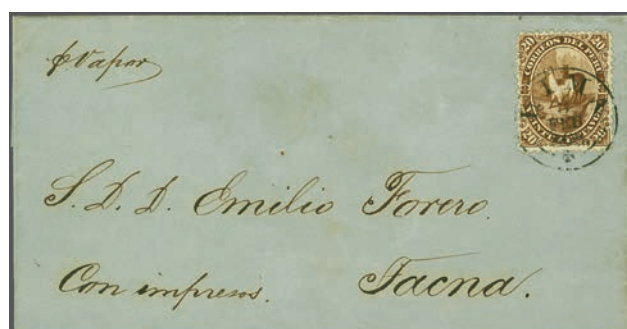 p. Vapor
20 20
CORREOS DEL PERU
LIMA
S. D. D. Emilio Forero.
Con impresos. Tacna.